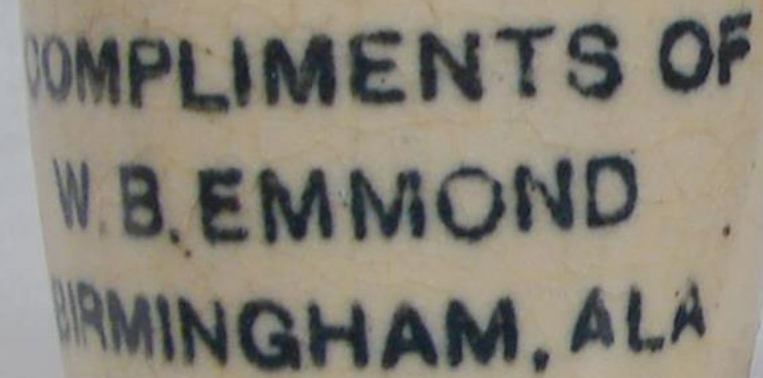 COMPLIMENTS OF
W. B. EMMOND
BIRMINGHAM, ALA